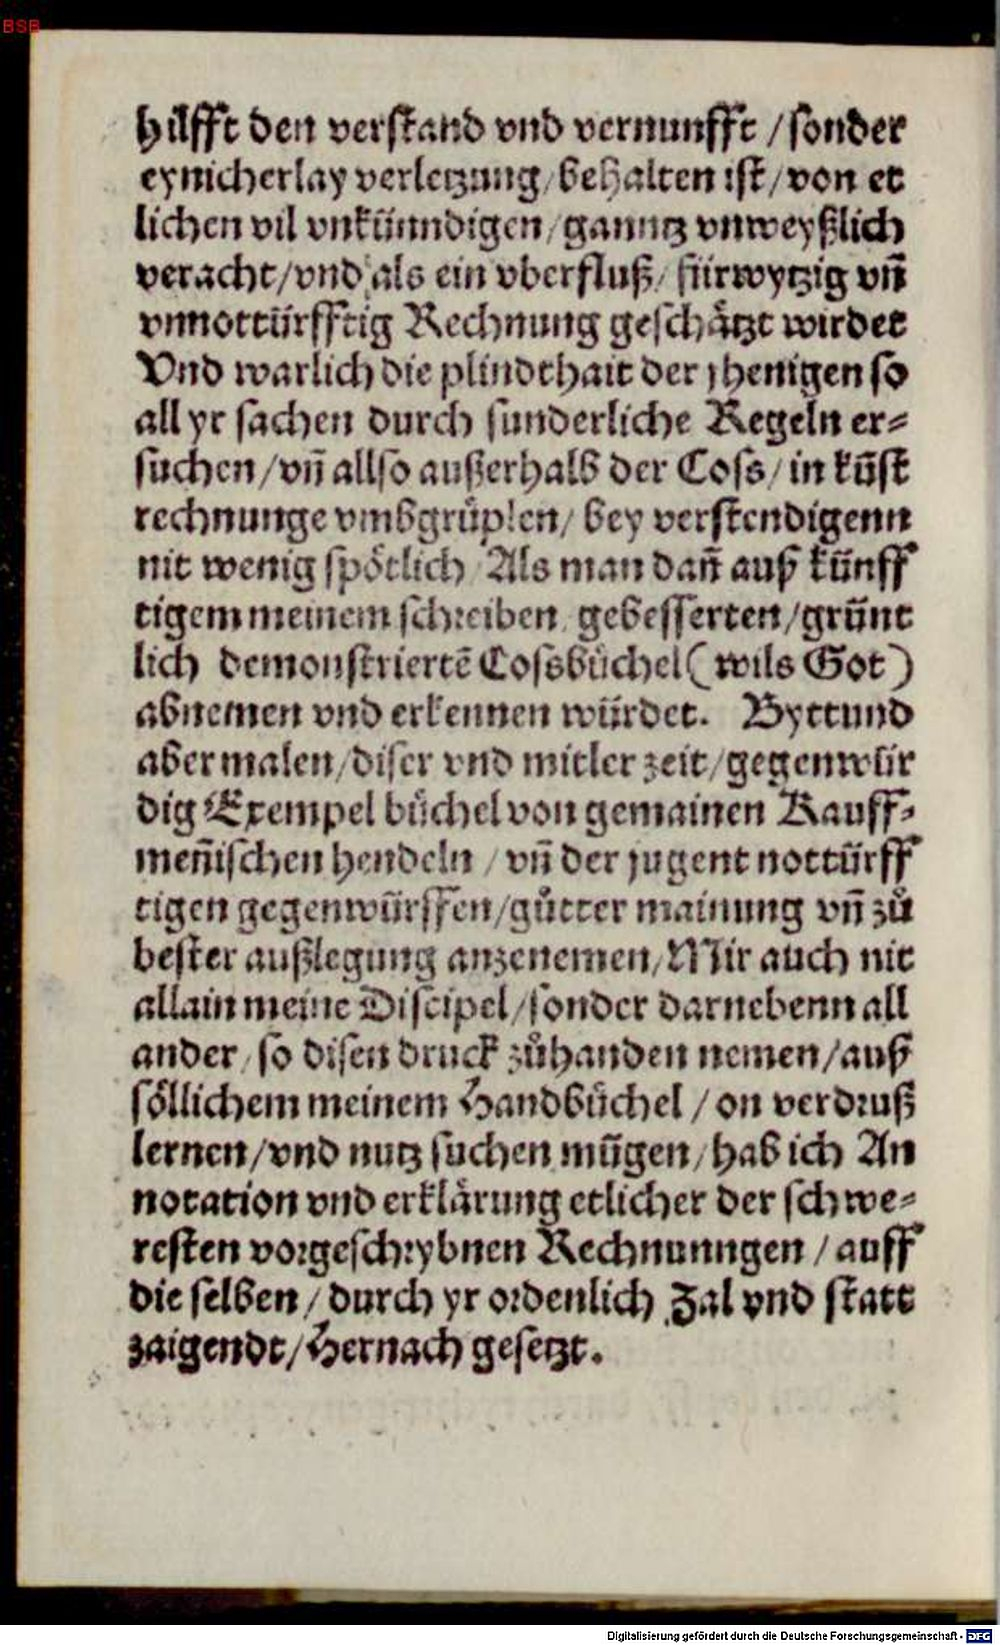 BSB
hilfft den verstand vnd vernunfft / sonder
eynicherlay verletzung / behalten ist / von et
lichen vil vnkünndigen / ganntz vnweyßlich
veracht / vnd als ein vberfluß / fürwytzig vñ
vnnottürfftig Rechnung geschätzt wirdet
Vnd warlich die plindthait der jhenigen so
all yr sachen durch sunderliche Regeln er⸗
suchen / vñ allso außerhalb der Coss / in kūst
rechnunge vmbgrüplen / bey verstendigenn
nit wenig spötlich / Als man dañ auß künff
tigem meinem schreiben gebesserten / grünt
lich demonstriertē Cossbüchel ( wils Got )
abnemen vnd erkennen würdet. Byttund
abermalen / diser vnd mitler zeit / gegenwür
dig Exempel büchel von gemainen Kauff⸗
meñischen hendeln / vñ der jugent nottürff
tigen gegenwürffen / gůtter mainung vñ zů
bester außlegung anzenemen / Mir auch nit
allain meine Discipel / sonder darnebenn all
ander / so disen druck zůhanden nemen / auß
söllichem meinem Handbüchel / on verdruß
lernen / vnd nutz suchen mügen / hab ich An
notation vnd erklärung etlicher der schwe⸗
resten vorgeschrybnen Rechnunngen / auff
die selben / durch yr ordenlich Zal vnd statt
zaigendt / Hernach gesetzt.
Digitalisierung gefördert durch die Deutsche Forschungsgemeinschaft - DFG